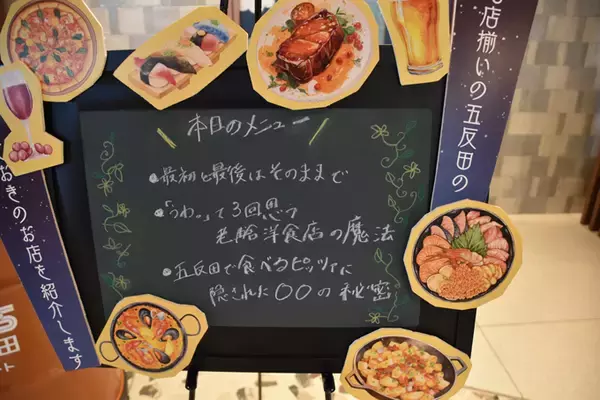 名店揃いの五反田の
おきのお店を紹介します
田
本日のメニュー
•最初と最後はそのままで
•「うわっ」て3回思う
老舗洋食店の魔法
•五反田で食べるピッツァに
隠された〇〇の秘密